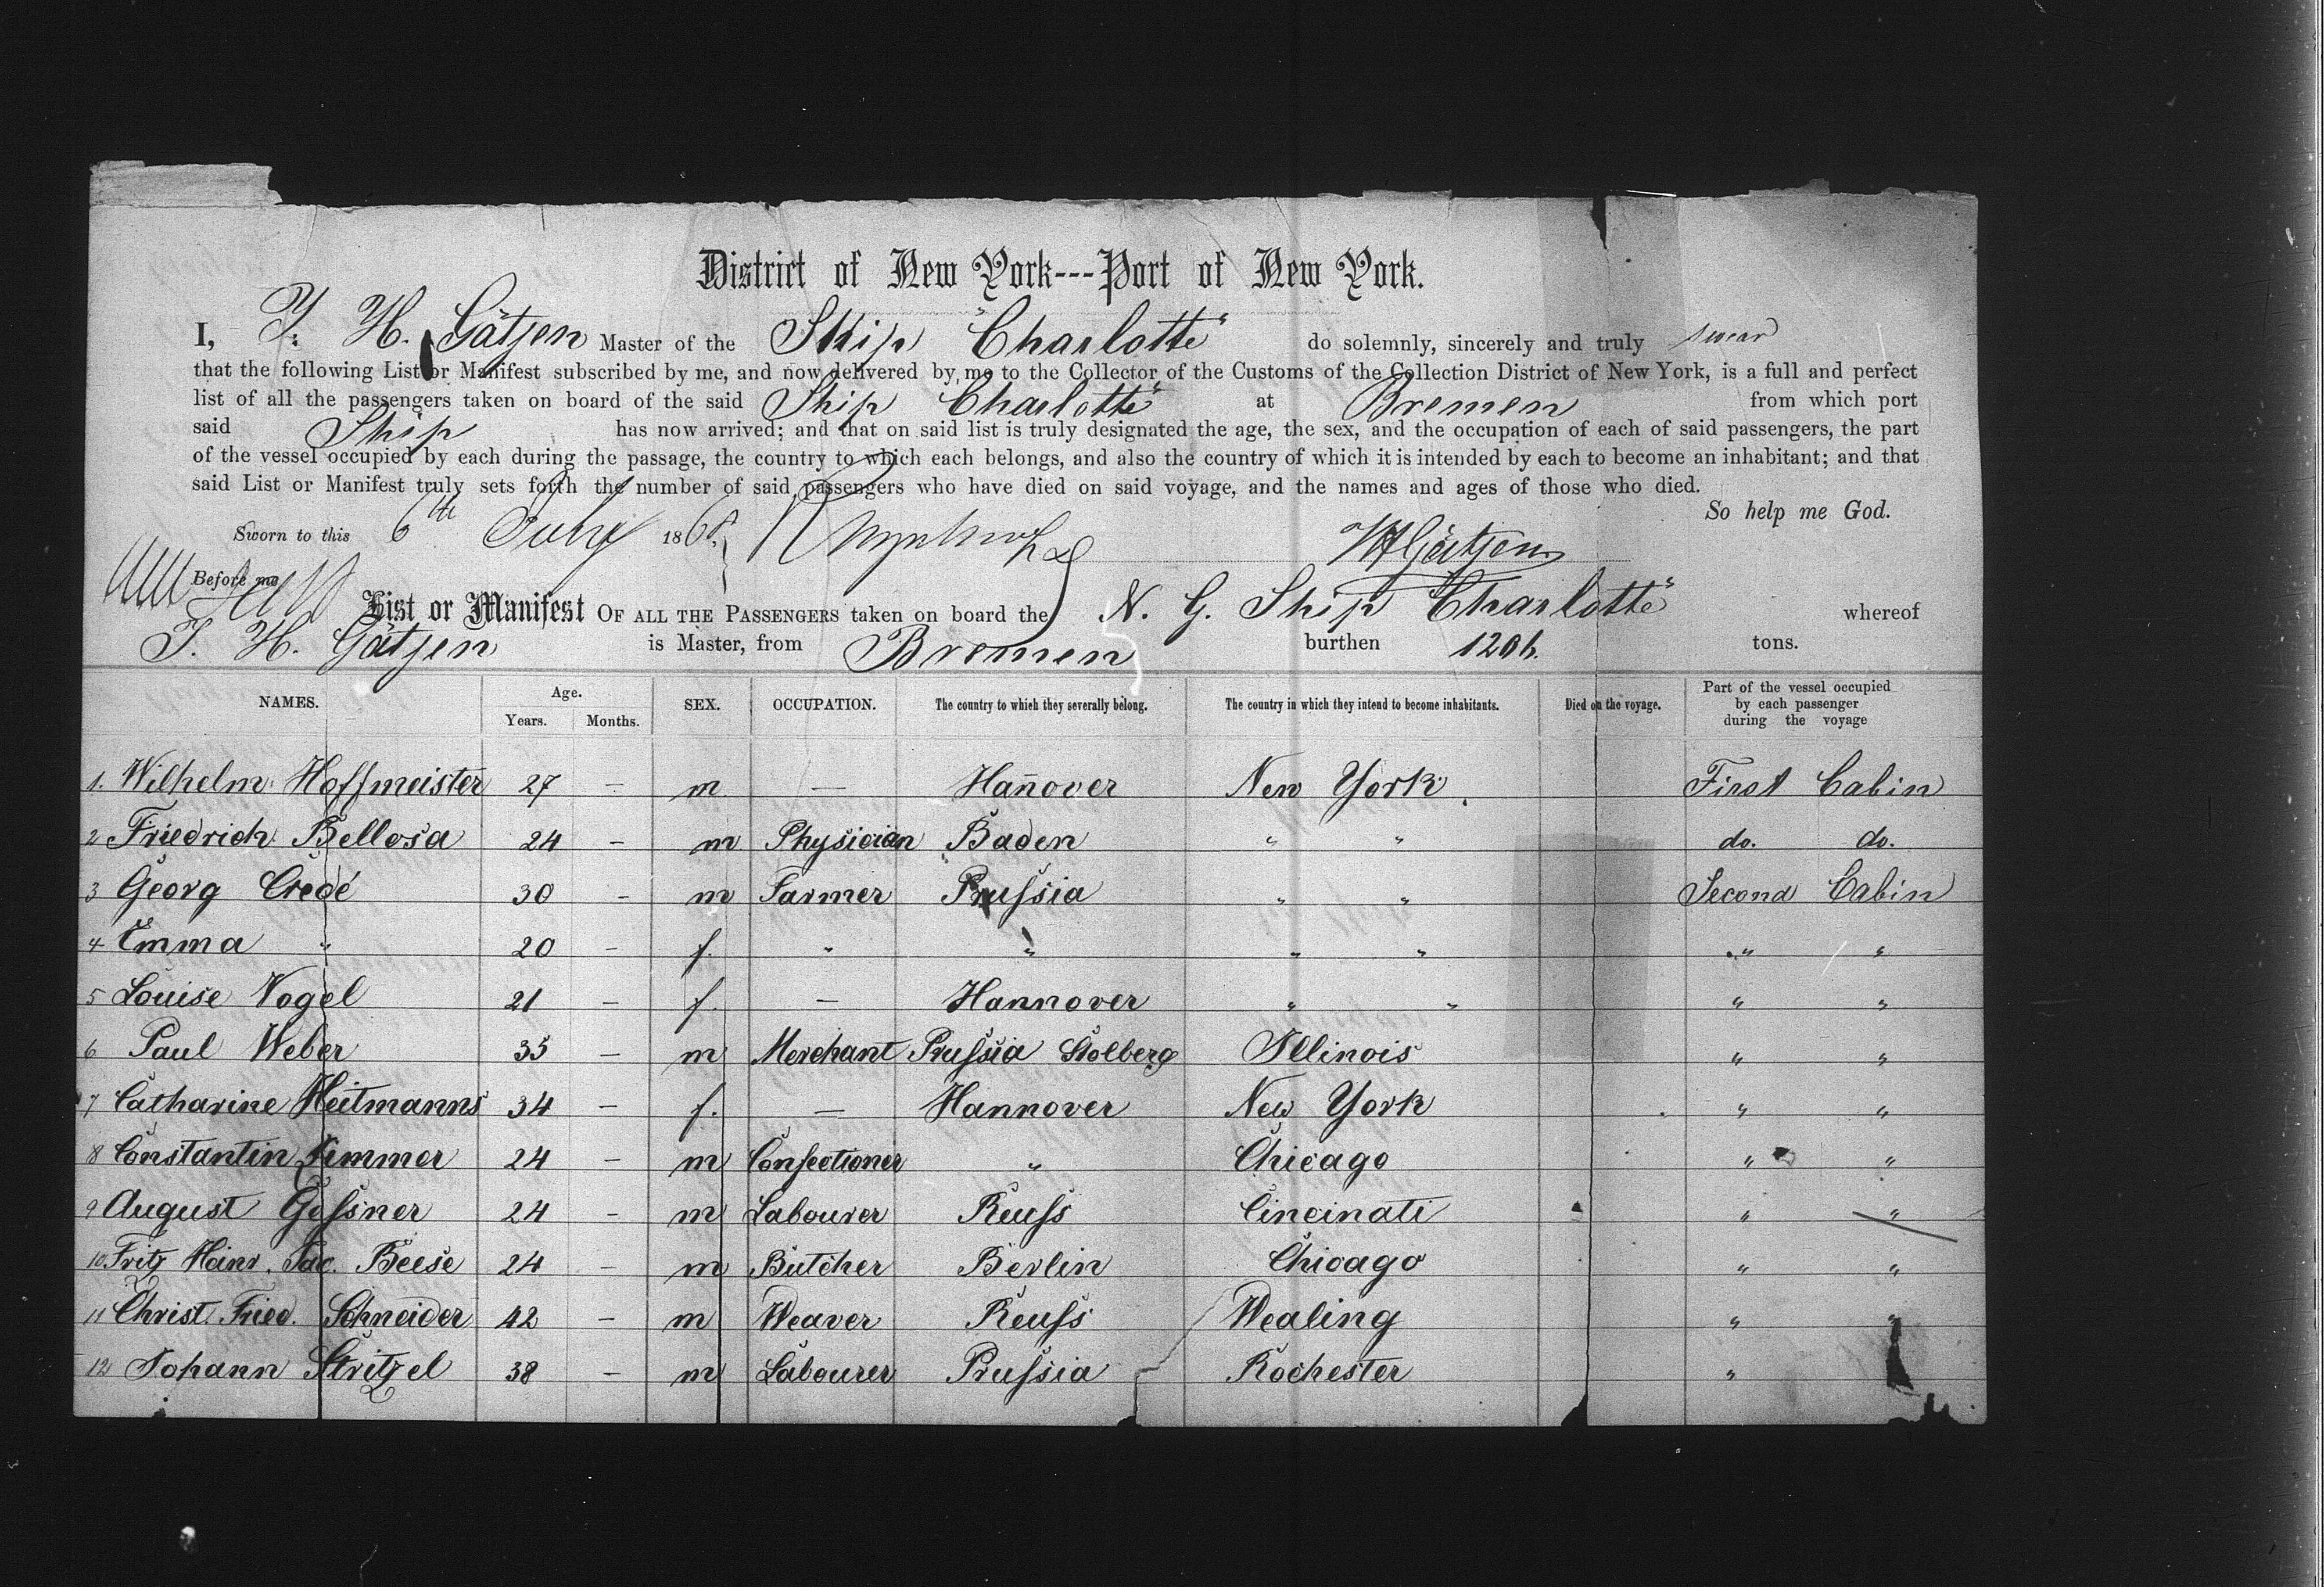 District of New York---Port of New York.
I, J. H. Gätjen Master of the Ship "Charlotte" do solemnly, sincerely and truly swear
that the following List or Manifest subscribed by me, and now delivered by me to the Collector of the Customs of the Collection District of New York, is a full and perfect
list of all the passengers taken on board of the said Ship Charlotte" at Bremen from which port
said Ship has now arrived; and that on said list is truly designated the age, the sex, and the occupation of each of said passengers, the part
of the vessel occupied by each during the passage, the country to which each belongs, and also the country of which it is intended by each to become an inhabitant; and that
said List or Manifest truly sets forth the number of said passengers who have died on said voyage, and the names and ages of those who died.
So help me God.
Sworn to this 6th July 1868, Gätjen
Before me
List or Manifest OF ALL THE PASSENGERS taken on board the N. G. Ship "Charlotte" whereof
J. H. Gätjen is Master, from Bremen burthen 1206. tons.
NAMES. Age. Years. Months. SEX. OCCUPATION. The country to which they severally belong. The country in which they intend to become inhabitants. Died on the voyage. Part of the vessel occupied by each passenger during the voyage
1. Wilhelm Hoffmeister 27 – m — Hañover New York. First Cabin
2 Friedrich Bellosa 24 – m Physician Baden " " do. do.
3 Georg Credé 30 – m Farmer Prussia " " Second Cabin
4 Emma " 20 – f. " " " " " "
5 Louise Vogel 21 – f. — Hannover " " " "
6 Paul Weber 35 – m Merchant Prussia Stolberg Illinois " "
7 Catharine Heitmanns 34 – f. — Hannover New York " "
8 Constantin Zimmer 24 – m Confectioner " Chicago " "
9 August Gessner 24 – m Labourer Reuss Cincinati " "
10 Fritz Heinr. Jac. Beese 24 – m Butcher Berlin Chicago " "
11 Christ. Fried. Schneider 42 – m Weaver Reuss Wealing " "
12 Johann Stritzel 38 – m Labourer Prussia Rochester "